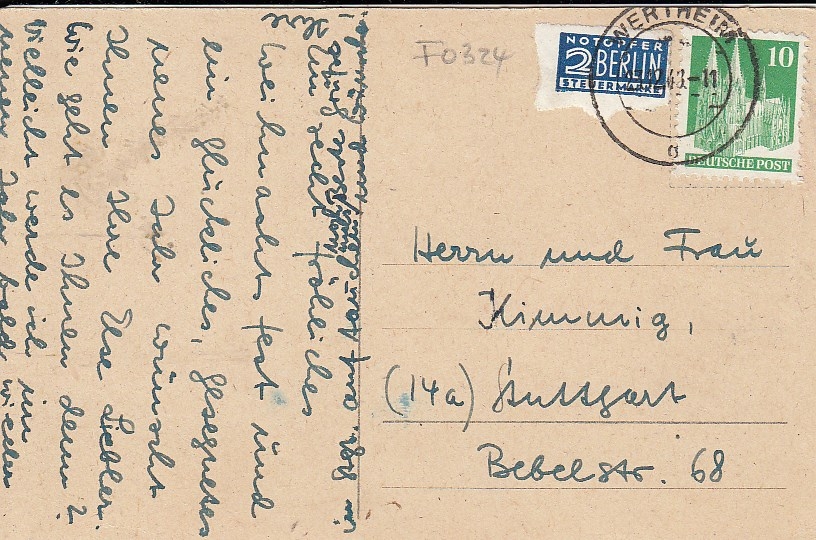 F0324
NOTOPFER
2 BERLIN
STEUERMARKE
WERTHEIM
10
DEUTSCHE POST
Herrn und Frau
Kimmig,
(14a) Stuttgart
Bebelstr. 68
Ein recht fröhliches
Weihnachtsfest und
ein glückliches, gesegnetes
neues Jahr wünscht
Ihnen Ihre Else Liebler.
Wie geht es Ihnen denn?
Vielleicht werde ich im
neuen Jahr bald wieder